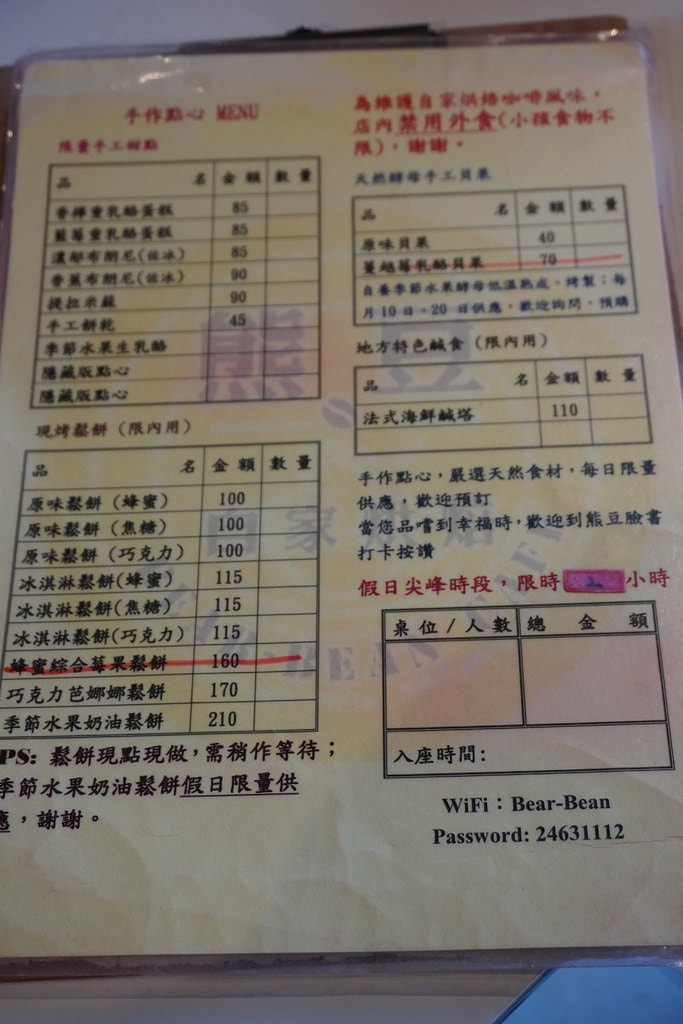 手作點心 MENU
限量手工甜點
品 名 金 額 數 量
香檸重乳酪蛋糕 85
藍莓重乳酪蛋糕 85
濃郁布朗尼(佐冰) 85
香蕉布朗尼(佐冰) 90
提拉米蘇 90
手工餅乾 45
季節水果生乳酪
隱藏版點心
隱藏版點心
現烤鬆餅 (限內用)
品 名 金 額 數 量
原味鬆餅 (蜂蜜) 100
原味鬆餅 (焦糖) 100
原味鬆餅 (巧克力) 100
冰淇淋鬆餅(蜂蜜) 115
冰淇淋鬆餅(焦糖) 115
冰淇淋鬆餅(巧克力) 115
蜂蜜綜合莓果鬆餅 160
巧克力芭娜娜鬆餅 170
季節水果奶油鬆餅 210
PS: 鬆餅現點現做,需稍作等待;
季節水果奶油鬆餅假日限量供
應,謝謝。
為維護自家烘焙咖啡風味,
店內禁用外食(小孩食物不
限),謝謝。
天然酵母手工貝果
品 名 金 額 數 量
原味貝果 40
蔓越莓乳酪貝果 70
自養季節水果酵母低溫熟成、烤製;每
月10日、20日供應,歡迎詢問、預購
地方特色鹹食 (限內用)
品 名 金額 數 量
法式海鮮鹹塔 110
手作點心,嚴選天然食材,每日限量
供應,歡迎預訂
當您品嚐到幸福時,歡迎到熊豆臉書
打卡按讚
假日尖峰時段,限時 小時
桌位/人數 總 金 額
入座時間:
WiFi:Bear-Bean
Password: 24631112
熊豆
自家烘焙
BEAR-BEAN CAFE